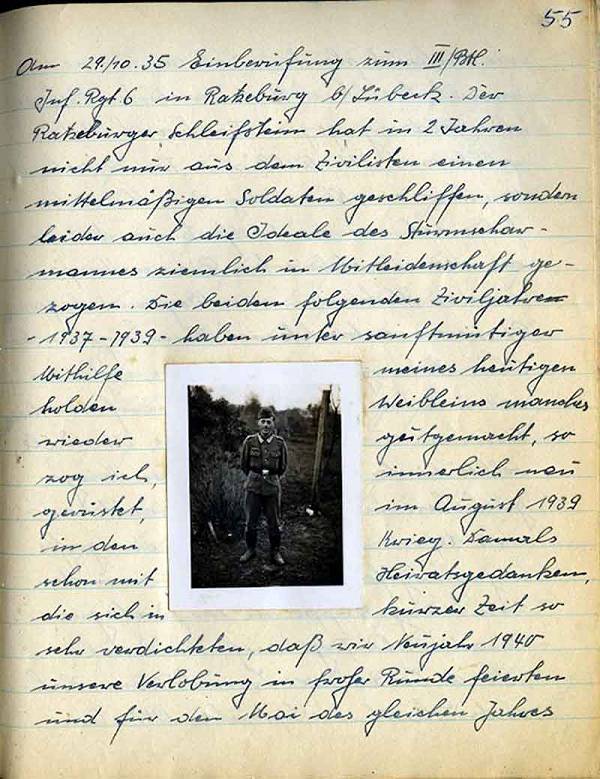 55
Am 29./10.35 Einberufung zum III/Btl.
Inf. Rgt 6 in Ratzeburg b/Lübeck. Der
Ratzeburger Schleifstein hat in 2 Jahren
nicht nur aus dem Zivilisten einen
mittelmäßigen Soldaten geschliffen, sondern
leider auch die Ideale des Sturmschar-
mannes ziemlich in Mitleidenschaft ge-
zogen. Die beiden folgenden Ziviljahre
- 1937-1939 - haben unter sanftmütiger
Mithilfe meines heutigen
holden Weibleins manches
wieder gutgemacht, so
zog ich, innerlich neu
gerüstet, im August 1939
in den Krieg. Damals
schon mit Heiratsgedanken,
die sich in kurzer Zeit so
sehr verdichteten, daß wir Neujahr 1940
unsere Verlobung in froher Runde feierten
und für den Mai des gleichen Jahres